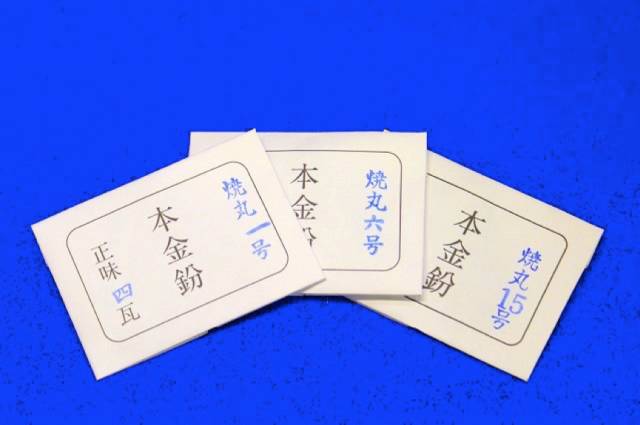 焼丸一号
本金鈖
正味四瓦
焼丸六号
本金鈖
焼丸15号
本金鈖